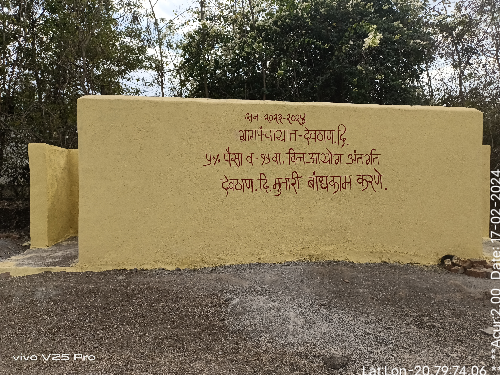 सन २०२२-२०२४
ग्रामपंचायत-देवठाण.दि.
५% पैसा व १५वा. वित्त आयोग अंतर्गत
देवठाण.दि.मुतारी बांधकाम करणे.
vivo V25 Pro
Lat Lon-20.79,74.06
**Acur:2.00 Date:17-02-2024